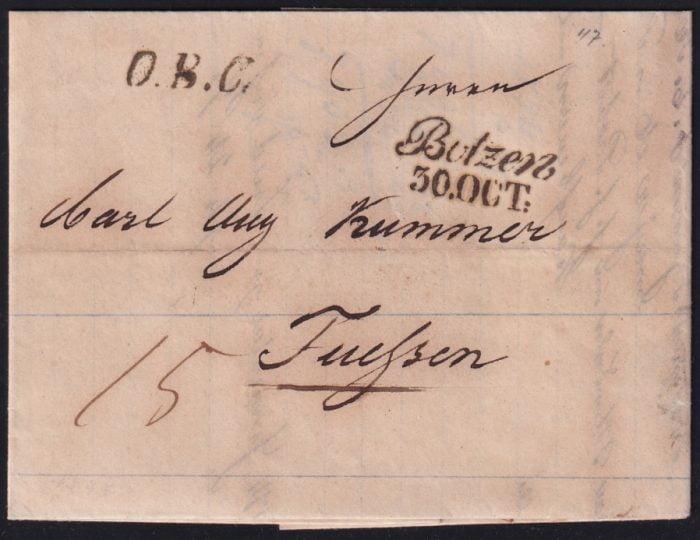 "17.
O.B.C.
Herrn
Botzen
30.OCT:
Carl Aug Kummer
Fuessen
15